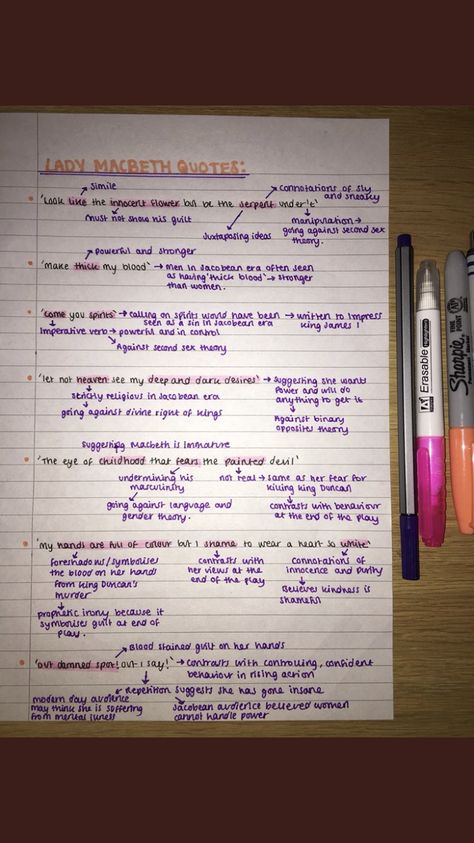 LADY MACBETH QUOTES:
simile
connotations of sly and sneaky
'Look like the innocent flower but be the serpent under't'
must not show his guilt
juxtaposing ideas
manipulation → going against second sex theory.
powerful and stronger
'make thick my blood' → men in Jacobean era often seen as having 'thick blood' → stronger than women.
'come you spirits' → calling on spirits would have been seen as a sin in Jacobean era → written to impress King James I
Imperative verb → powerful and in control
Against second sex theory
'let not heaven see my deep and dark desires' → suggesting she wants power and will do anything to get is
strictly religious in Jacobean era
going against divine right of kings
Against binary opposites theory
suggesting Macbeth is immature
'The eye of childhood that fears the painted devil'
undermining his masculinity
going against language and gender theory.
not real → same as her fear for killing King Duncan
contrasts with behaviour at the end of the play
'my hands are full of colour but I shame to wear a heart so white'
foreshadows/symbolises the blood on her hands from King Duncan's murder
prophetic irony because it symbolises guilt at end of play.
contrasts with her views at the end of the play
connotations of innocence and purity
Believes kindness is shameful
Blood stained guilt on her hands
'out damned spot! out I say!' → contrasts with controlling, confident behaviour in rising action
Repetition suggests she has gone insane
modern day audience may think she is suffering from mental illness
Jacobean audience believed women cannot handle power
Erasable
Sharpie
FINE POINT